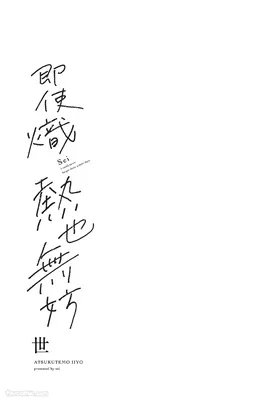 即使熾
熱也無妨
Sei
世
ATSUKUTEMO IIYO
presented by sei